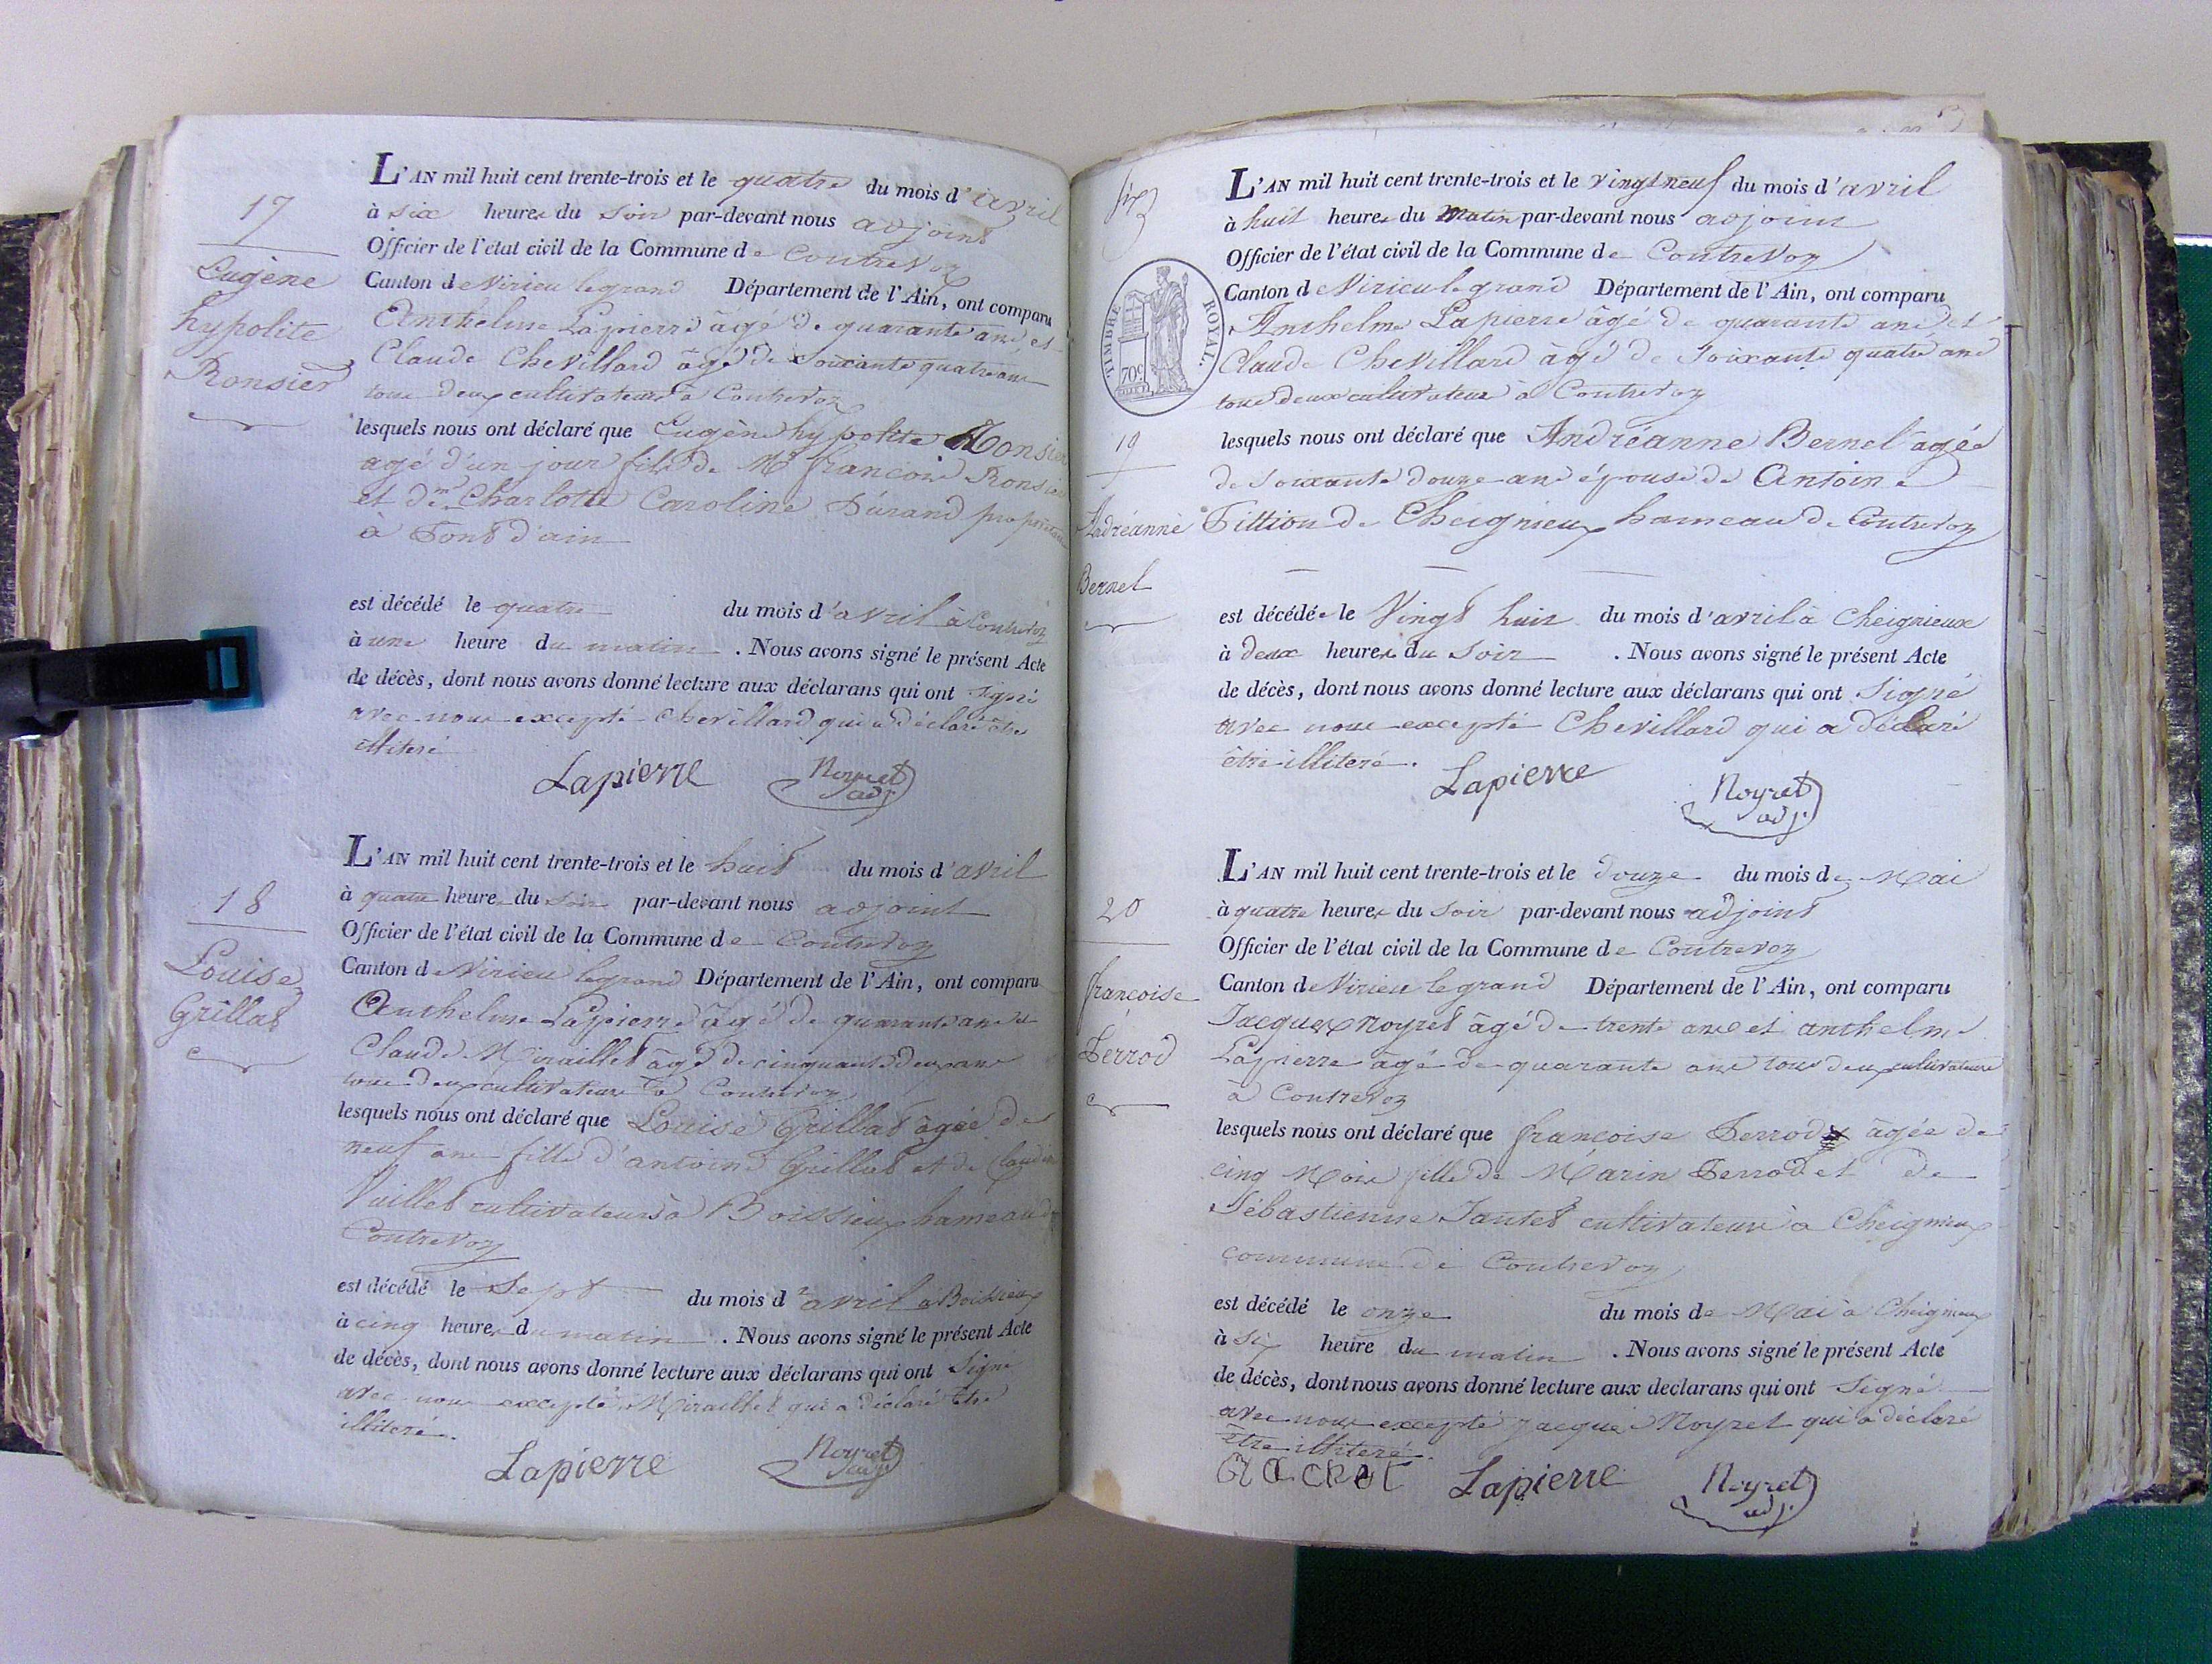 17
Eugène
hypolite
Ronsier
L'AN mil huit cent trente-trois et le quatre du mois d'avril
à six heures du soir par-devant nous adjoint
Officier de l'état civil de la Commune de Contrevoz
Canton de Virieu legrand Département de l'Ain, ont comparu
Anthelme Lapierre âgé de quarante ans et
Claude Chevillard âgé de soixante quatre ans
tous deux cultivateurs à Contrevoz
lesquels nous ont déclaré que Eugène hypolite Ronsier
agé d'un jour fils de Mr françois Ronsier
et de dme Charlotte Caroline Durand propriétaires
à Pont d'ain
est décédé le quatre du mois d'avril à Contrevoz
à une heure du matin. Nous avons signé le présent Acte
de décès, dont nous avons donné lecture aux déclarans qui ont signé
avec nous excepté Chevillard qui a déclaré être
illiteré
Lapierre Noyret adj.
18
Louise
Grillat
L'AN mil huit cent trente-trois et le huit du mois d'avril
à quatre heures du soir par-devant nous adjoint
Officier de l'état civil de la Commune de Contrevoz
Canton de Virieu legrand Département de l'Ain, ont comparu
Anthelme Lapierre âgé de quarante ans et
Claude Miraillet âgé de cinquante deux ans
tous deux cultivateurs à Contrevoz
lesquels nous ont déclaré que Louise Grillat âgée de
neuf ans fille d'antoine Grillat et de Claudine
Vuillet cultivateurs à Boissieux hameau de
Contrevoz
est décédé le Sept du mois d'avril à Boissieux
à cinq heures du matin. Nous avons signé le présent Acte
de décès, dont nous avons donné lecture aux déclarans qui ont Signé
avec nous excepté Miraillet qui a déclaré être
illiteré.
Lapierre Noyret adj.
six
TIMBRE ROYAL.
70c
19
Andréanne
Bernel
L'AN mil huit cent trente-trois et le vingt neuf du mois d'avril
à huit heures du matin par-devant nous adjoint
Officier de l'état civil de la Commune de Contrevoz
Canton de Virieu le grand Département de l'Ain, ont comparu
Anthelme Lapierre âgé de quarante ans et
Claude Chevillard âgé de soixante quatre ans
tous deux cultivateurs à Contrevoz
lesquels nous ont déclaré que Andréanne Bernel agée
de soixante douze ans épouse de Antoine
Fittion de Cheignieux hameau de Contrevoz
est décédée le Vingt huit du mois d'avril à Cheignieux
à deux heures du Soir. Nous avons signé le présent Acte
de décès, dont nous avons donné lecture aux déclarans qui ont Signé
avec nous excepté Chevillard qui a déclaré
être illiteré.
Lapierre Noyret adj.
20
françoise
Perrod
L'AN mil huit cent trente-trois et le douze du mois de Mai
à quatre heures du soir par-devant nous adjoint
Officier de l'état civil de la Commune de Contrevoz
Canton de Virieu le grand Département de l'Ain, ont comparu
Jacques Noyret âgé de trente ans et anthelme
Lapierre âgé de quarante ans tous deux cultivateurs
à Contrevoz
lesquels nous ont déclaré que françoise Perrod âgée de
cinq Mois fille de Marin Perrod et de
Sébastienne Jantet cultivateurs à Cheignieux
commune de Contrevoz
est décédé le onze du mois de Mai à Cheignieux
à Six heure du matin. Nous avons signé le présent Acte
de décès, dont nous avons donné lecture aux declarans qui ont Signé
avec nous excepté jacques Noyret qui a déclaré
être illiteré.
Lapierre Noyret adj.